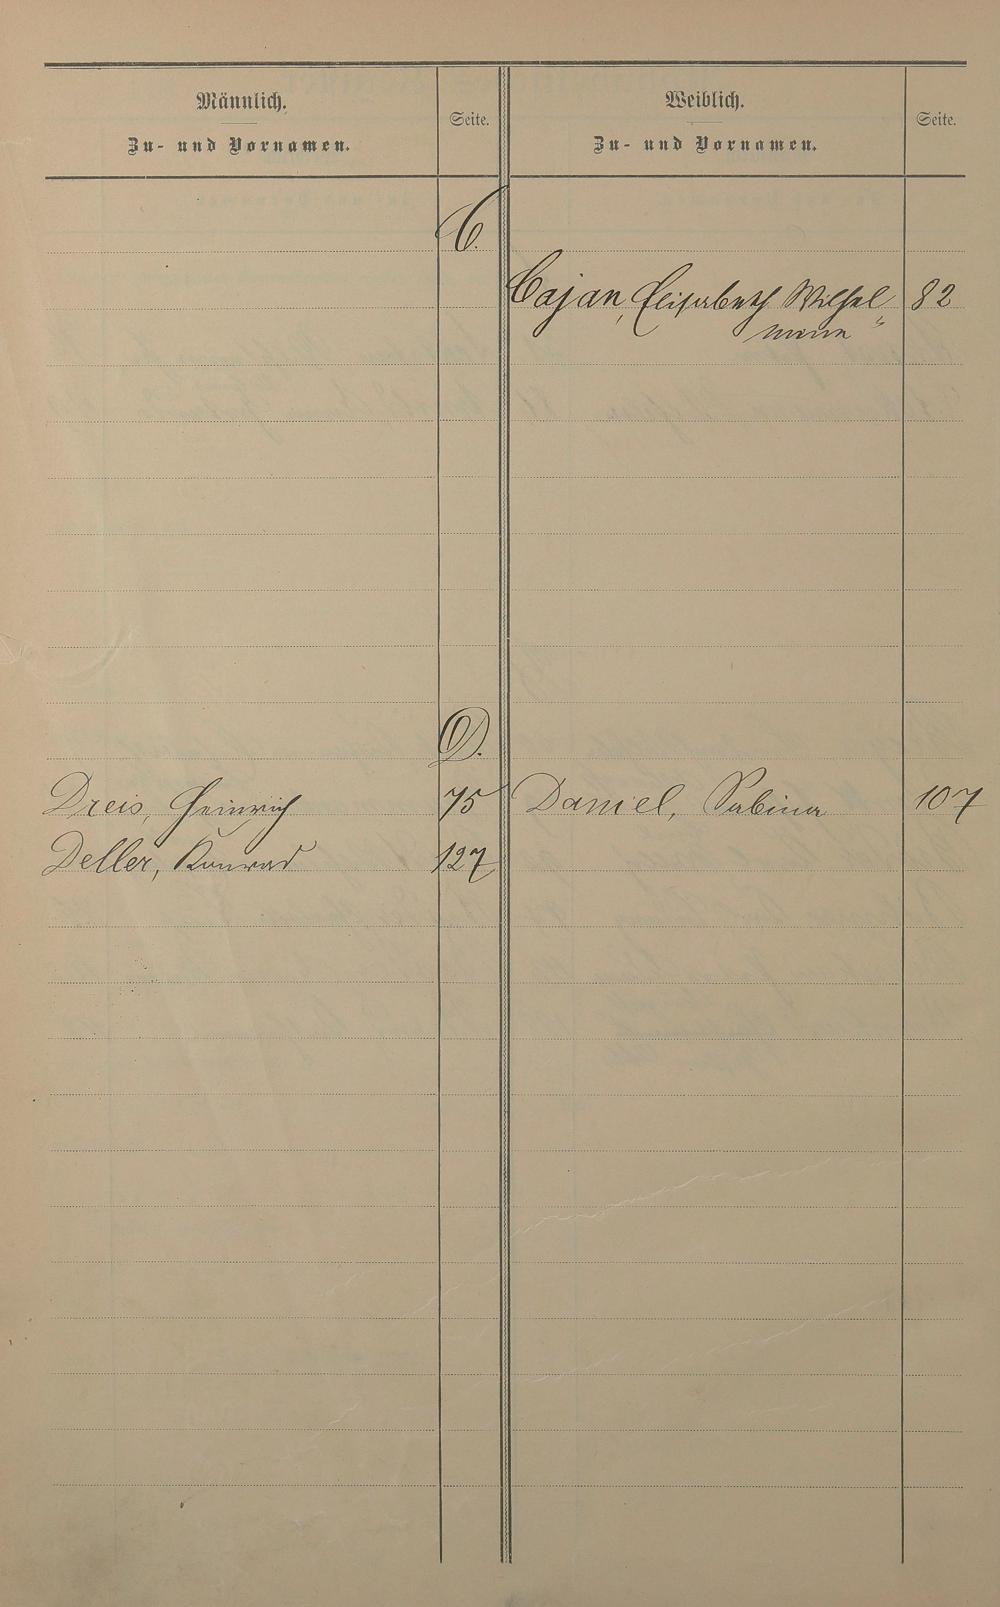 Männlich. Weiblich.
Seite. Seite.
Zu- und Vornamen. Zu- und Vornamen.
C.
Cajan, Elisabeth Wilhel 82
mine
D.
Dreis, Heinrich 75 Daniel, Sabina 107
Deller, Konrad 127